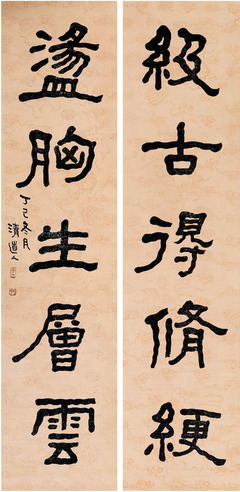 汲古得脩綆
盪胸生層雲
丁巳冬月
清道人